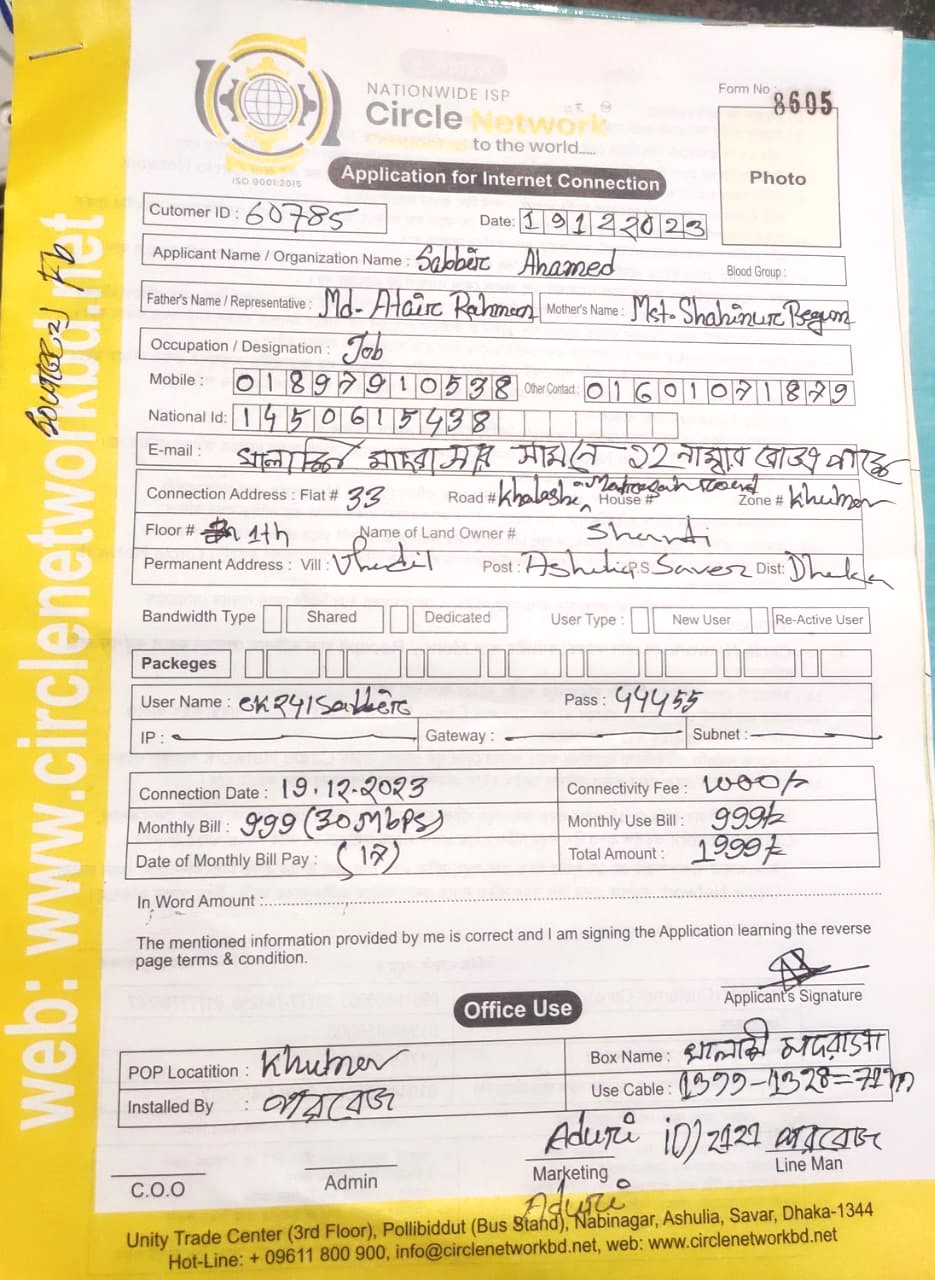 NATIONWIDE ISP
Circle Network
to the world.....
ISO 9001:2015
Form No : 8695
Photo
Application for Internet Connection
Cutomer ID : 60785 Date: 19122023
Applicant Name / Organization Name : Sabbir Ahamed Blood Group :
Father's Name / Representative : Md- Atair Rahman Mother's Name : Mst- Shahinur Begum
Occupation / Designation : Job
Mobile : 01897910538 Other Contact : 01601071879
National Id: 1450615438
E-mail : মাদ্রাসার সামনে ১২ নাম্বার রোডের
Connection Address : Flat # 33 Road # House # Zone # Khutmer
Floor # 1th Name of Land Owner #
Permanent Address : Vill : Vhadil Post : Ashulia P.S Saver Dist: Dhaka
Bandwidth Type Shared Dedicated User Type : New User Re-Active User
Packeges
User Name : Pass : 44455
IP : Gateway : Subnet :
Connection Date : 19.12.2023 Connectivity Fee : 1000/-
Monthly Bill : 999 (30Mbps) Monthly Use Bill : 999/-
Date of Monthly Bill Pay : (17) Total Amount : 1999/-
In Word Amount :
The mentioned information provided by me is correct and I am signing the Application learning the reverse
page terms & condition.
Applicant's Signature
Office Use
POP Locatition : Khutmer Box Name : মাদরাসা
Installed By : পারবেজ Use Cable : 1399-1328=71m
Aduri iD) 2121 পারবেজ
C.O.O Admin Marketing Line Man
Aduri
Unity Trade Center (3rd Floor), Pollibiddut (Bus Stand), Nabinagar, Ashulia, Savar, Dhaka-1344
Hot-Line: + 09611 800 900, info@circlenetworkbd.net, web: www.circlenetworkbd.net
web: www.circlenetworkbd.net